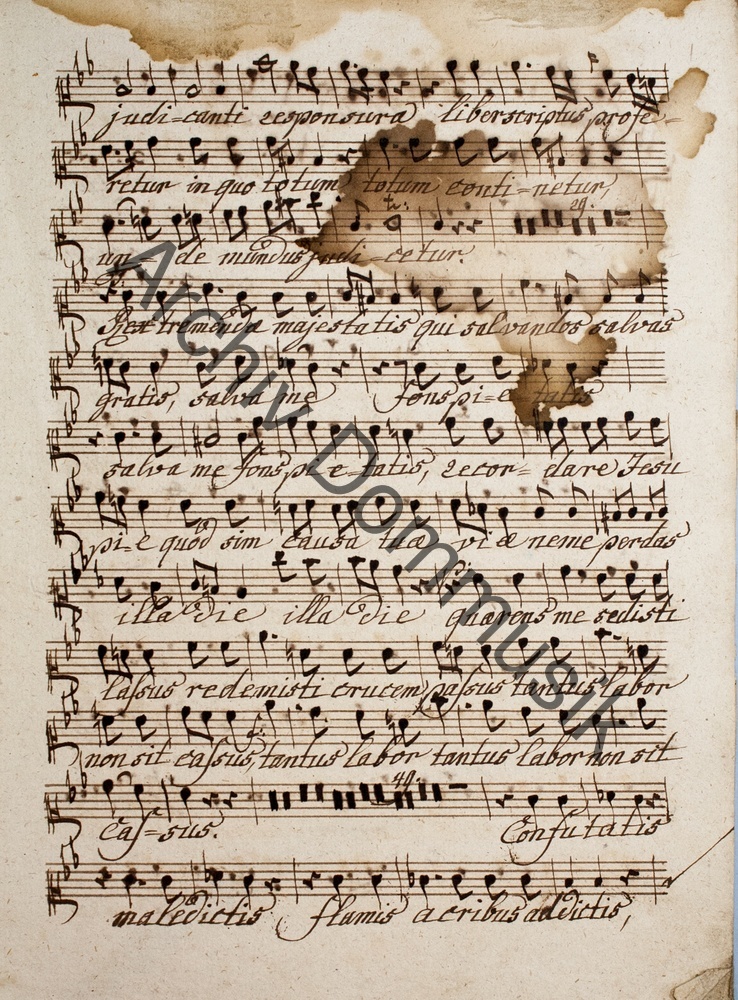 judi=canti responsura liber scriptus profe=
retur in quo totum totum conti=netur,
29.
un=de mundus judi=cetur.
Rex tremendæ majestatis qui salvandos salvas
gratis, salva me fons pi=e=tatis
salva me fons pi e=tatis, recor=dare Jesu
pi=e quod sim causa tuæ viæ ne me perdas
illa die illa die quærens me sedisti
lassus redemisti crucem passus tantus labor
non sit cassus, tantus labor tantus labor non sit
40.
Cas=sus. Confutatis
maledictis flamis acribus addictis,
Archiv Dommusik